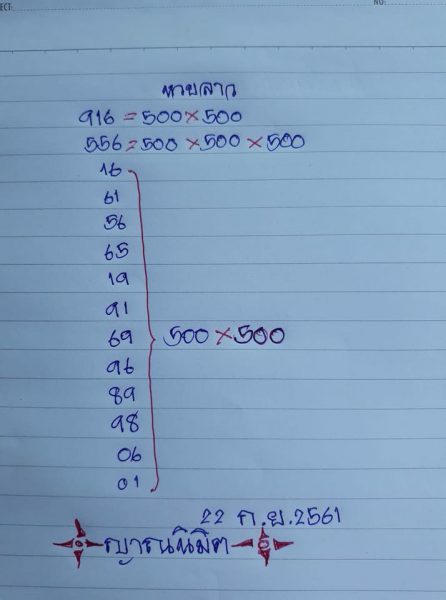 ECT:
NO:
หวยลาว
916 = 500 × 500
556 = 500 × 500 × 500
16
61
56
65
19
91
69 500 × 500
96
89
98
06
01
22 ก.ย. 2561
ญาณนิมิต